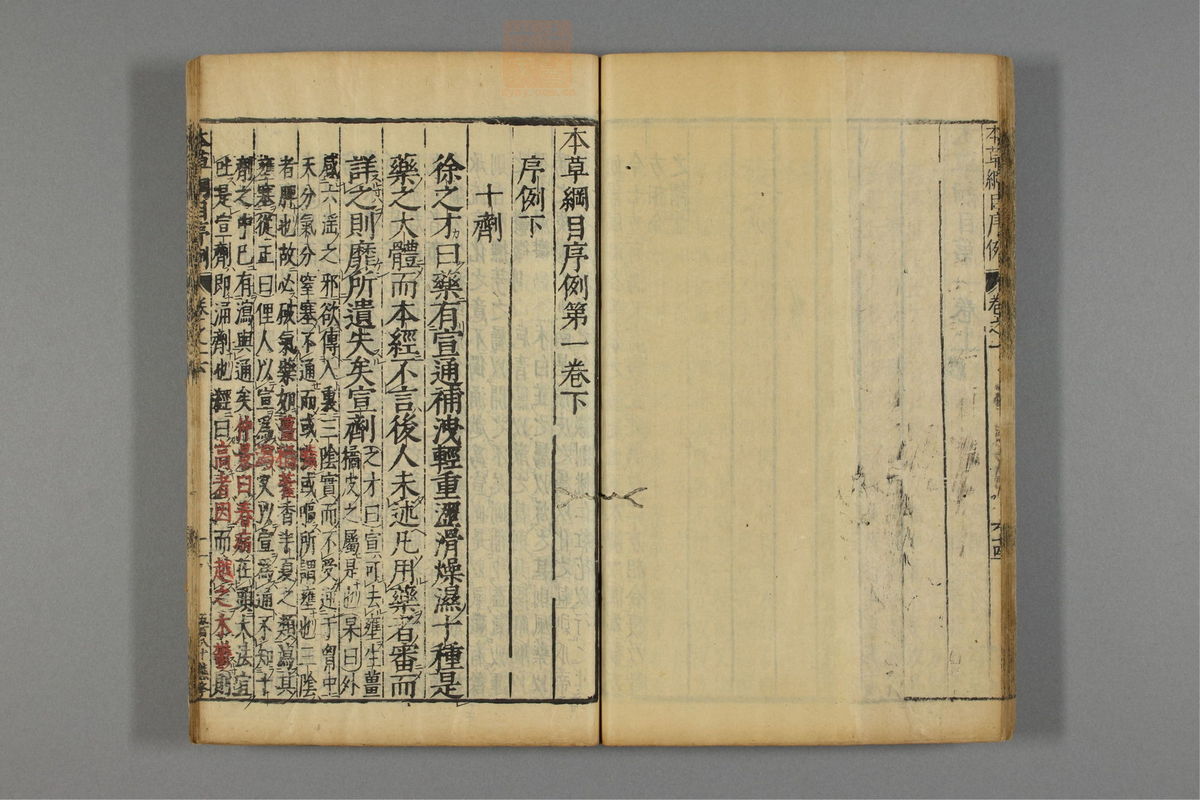 本草綱目序例
卷之一
六十四
本草綱目序例第一卷下
序例下
十劑
徐之才曰藥有宣通補洩輕重澀滑燥濕十種是
藥之大體而本經不言後人未述凡用藥者審而
詳之則靡所遺失矣宣劑之才曰宣可去壅生薑
橘皮之屬是也杲曰外
感六淫之邪欲傳入裏三陰實而不受逆于胷中
天分氣分窒塞不通而或噦或嘔所謂壅也三陰
者脾也故必破氣藥如薑橘藿香半夏之類瀉其
壅塞從正曰俚人以宣爲瀉又以宣爲通不知十
劑之中已有瀉與通矣仲景曰春病在頭大法宜
吐是宣劑即涌劑也經曰高者因而越之木鬱則
本草綱目序例
卷之一